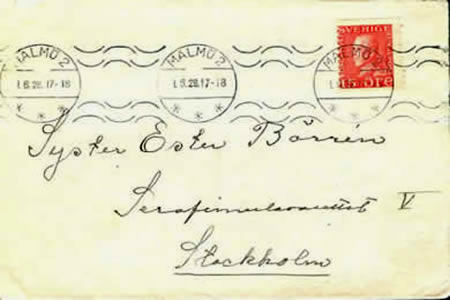 SVERIGE
MALMÖ 2 MALMÖ 2 MALMÖ 2
1.6.28.17-18 1.6.28.17-18 15 ÖRE
Syster Ester Börrén
Serafimerlasarettet V
Stockholm